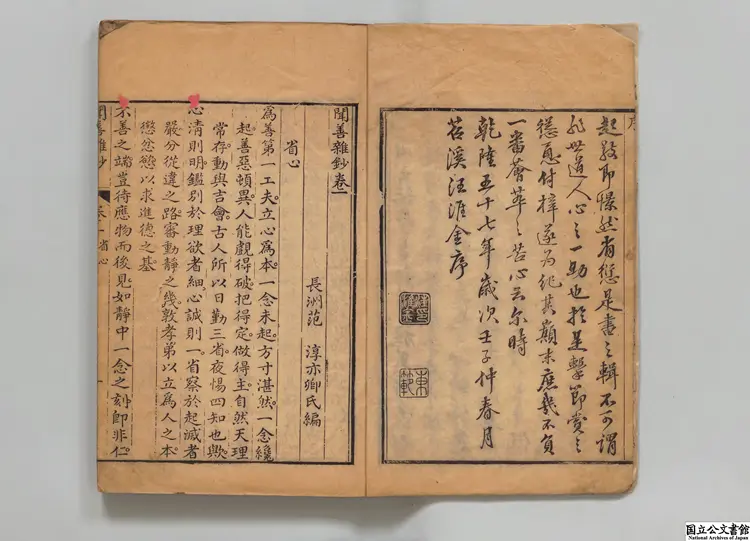 序
起敬即慄然有愆是書之輯不可謂
非世道人心之一助也於是擊節賞之
慫恿付梓遂為紀其顛末庶幾不負
一番薈萃之苦心云尔時
乾隆五十七年歲次壬子仲春月
苕溪汪淮金序
聞善雜鈔卷一
長洲范 淳亦卿氏編
省心
為善第一工夫立心為本一念未起方寸湛然一念纔
起善惡頓異人能觀得破把得定做得主自然天理
常存動與吉會古人所以日勤三省夜惕四知也歟
心清則明鑑別於理欲者細心誠則一省察於起滅者
嚴分從違之路審動靜之幾敦孝弟以立為人之本
懲忿慾以求進德之基
不善之端豈待應物而後見如靜中一念之刻即非仁
聞善雜鈔 卷一 省心 一
国立公文書館
National Archives of Japan